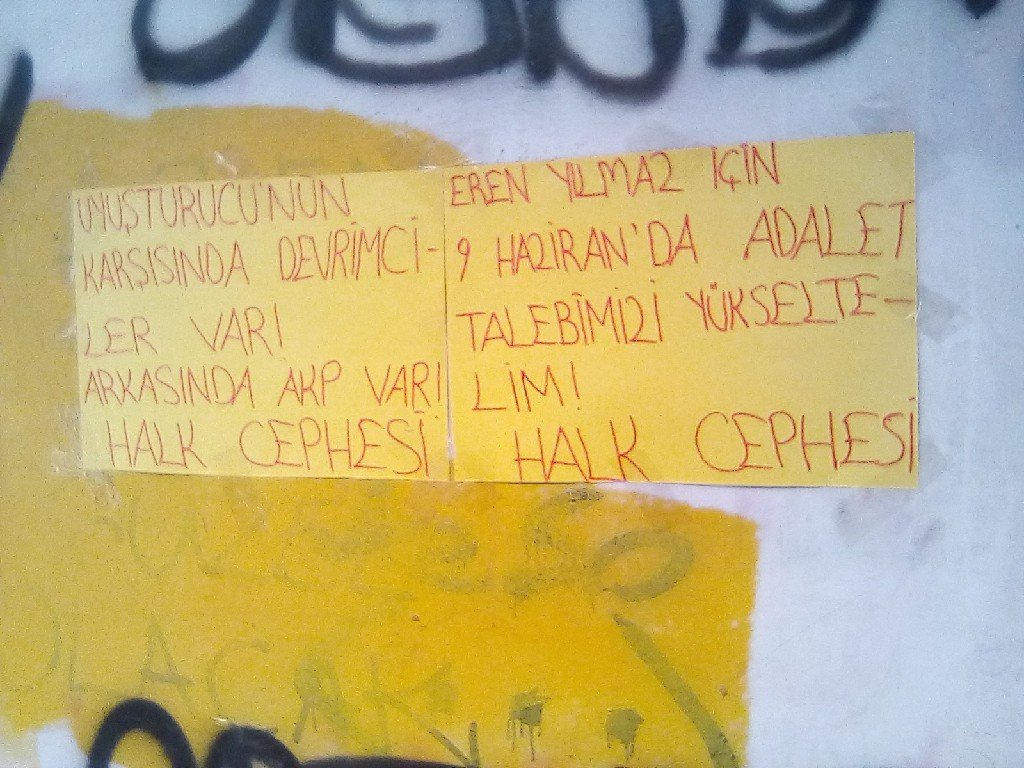 UYUŞTURUCU'NUN
KARŞISINDA DEVRİMCİ-
LER VAR!
ARKASINDA AKP VAR!
HALK CEPHESİ
EREN YILMAZ İÇİN
9 HAZİRAN'DA ADALET
TALEBİMİZİ YÜKSELTE-
LİM!
HALK CEPHESİ